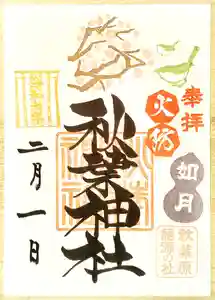 奉拝
火防
如月
秋葉神社
二月一日
秋葉原